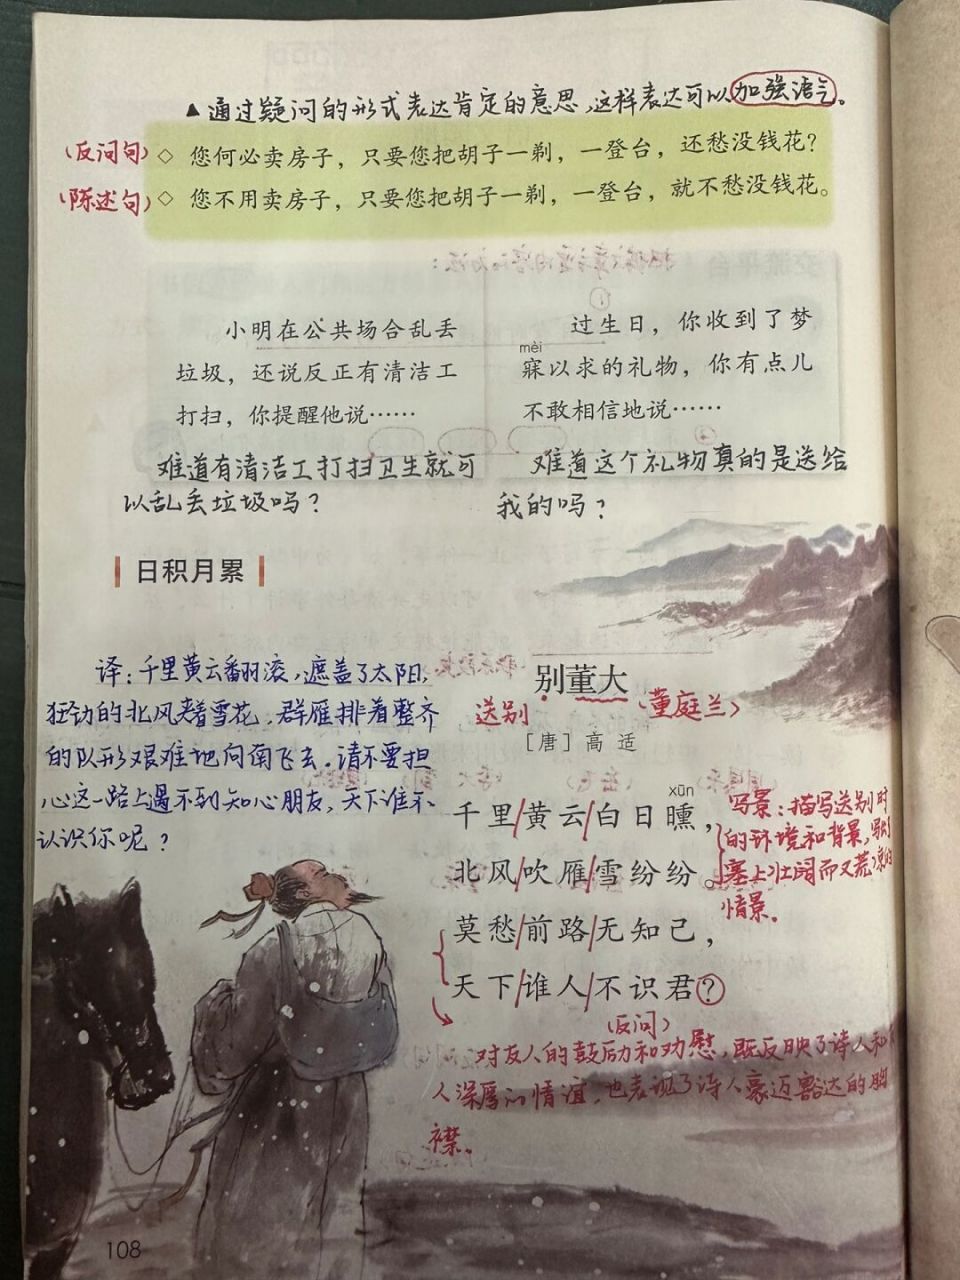 ▲通过疑问的形式表达肯定的意思,这样表达可以加强语气。
(反问句)◇ 您何必卖房子，只要您把胡子一剃，一登台，还愁没钱花？
(陈述句)◇ 您不用卖房子，只要您把胡子一剃，一登台，就不愁没钱花。
小明在公共场合乱丢
垃圾，还说反正有清洁工
打扫，你提醒他说……
难道有清洁工打扫卫生就可
以乱丢垃圾吗？
过生日，你收到了梦
mèi
寐以求的礼物，你有点儿
不敢相信地说……
难道这个礼物真的是送给
我的吗？
日积月累
译：千里黄云翻滚,遮盖了太阳,
狂劲的北风夹着雪花,群雁排着整齐
的队形艰难地向南飞去。请不要担
心这一路上遇不到知心朋友,天下谁不
认识你呢？
别董大
送别
(董庭兰)
［唐］高 适
xūn
千里/黄云/白日曛，
北风/吹雁/雪纷纷。
写景：描写送别时
的环境和背景,
塞上壮阔而又荒凉的
情景。
莫愁/前路/无知己，
天下/谁人/不识君？
(反问)
对友人的鼓励和劝慰,既反映了诗人和
人深厚的情谊,也表现了诗人豪迈豁达的胸
襟。
108